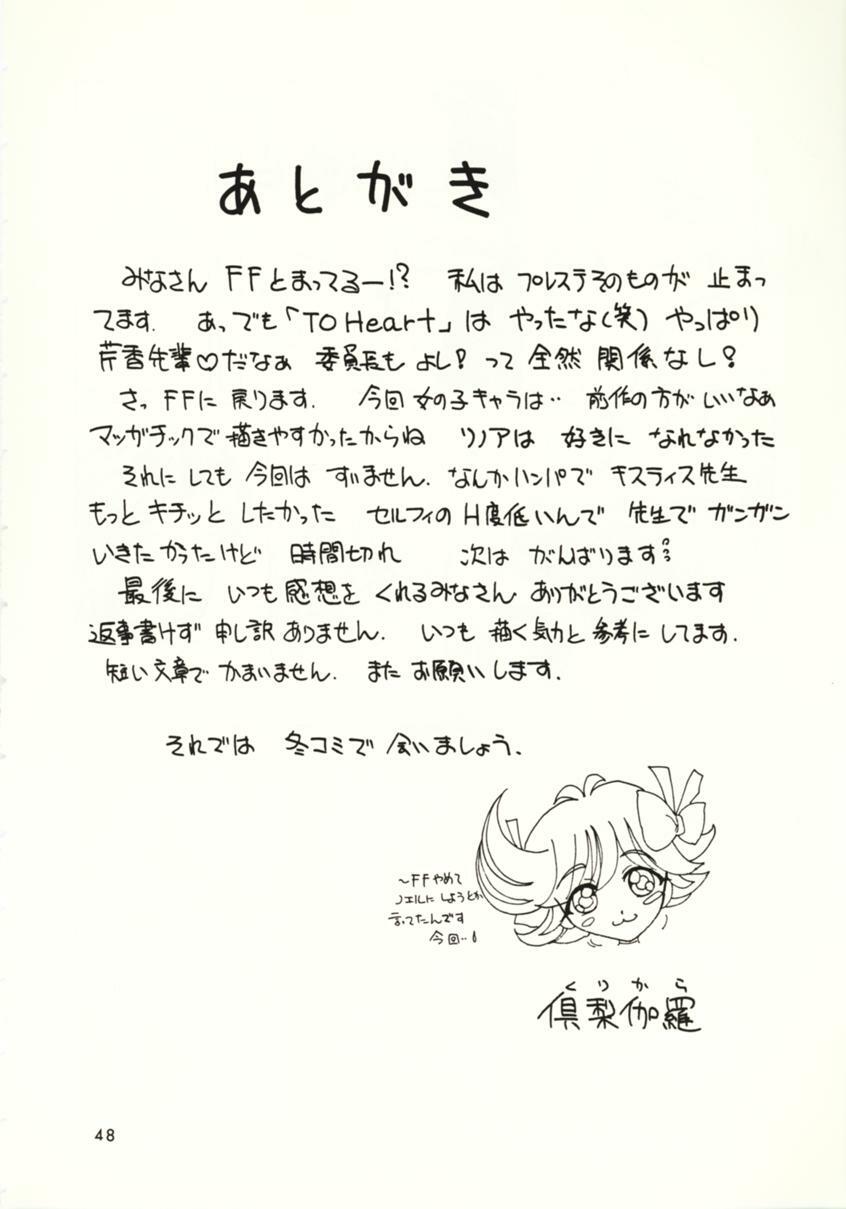 あとがき
みなさん FFとまってるー!? 私は プレステそのものが 止まっ
てます. あっでも「TO Heart」は やったな(笑) やっぱり
芹香先輩♡だなぁ 委員長も よし! って 全然 関係なし!
さっ FFに 戻ります. 今回 女の子キャラは‥ 前作の方が いいなぁ
マンガチックで描きやすかったからね リノアは 好きに なれなかった
それにしても 今回は すいません. なんかハンパで キスティス先生
もっと キチッと したかった セルフィのH度低いんで 先生で ガンガン
いきたかったけど 時間切れ 次は がんばります
最後に いつも感想を くれるみなさん ありがとうございます
返事書けず 申し訳ありません. いつも 描く気力と 参考にしてます.
短い文章で かまいません. また お願いします.
それでは 冬コミで 会いましょう.
〜FFやめて
ノエルに しようとか
言ってたんです
今回‥
くりから
倶梨伽羅
48